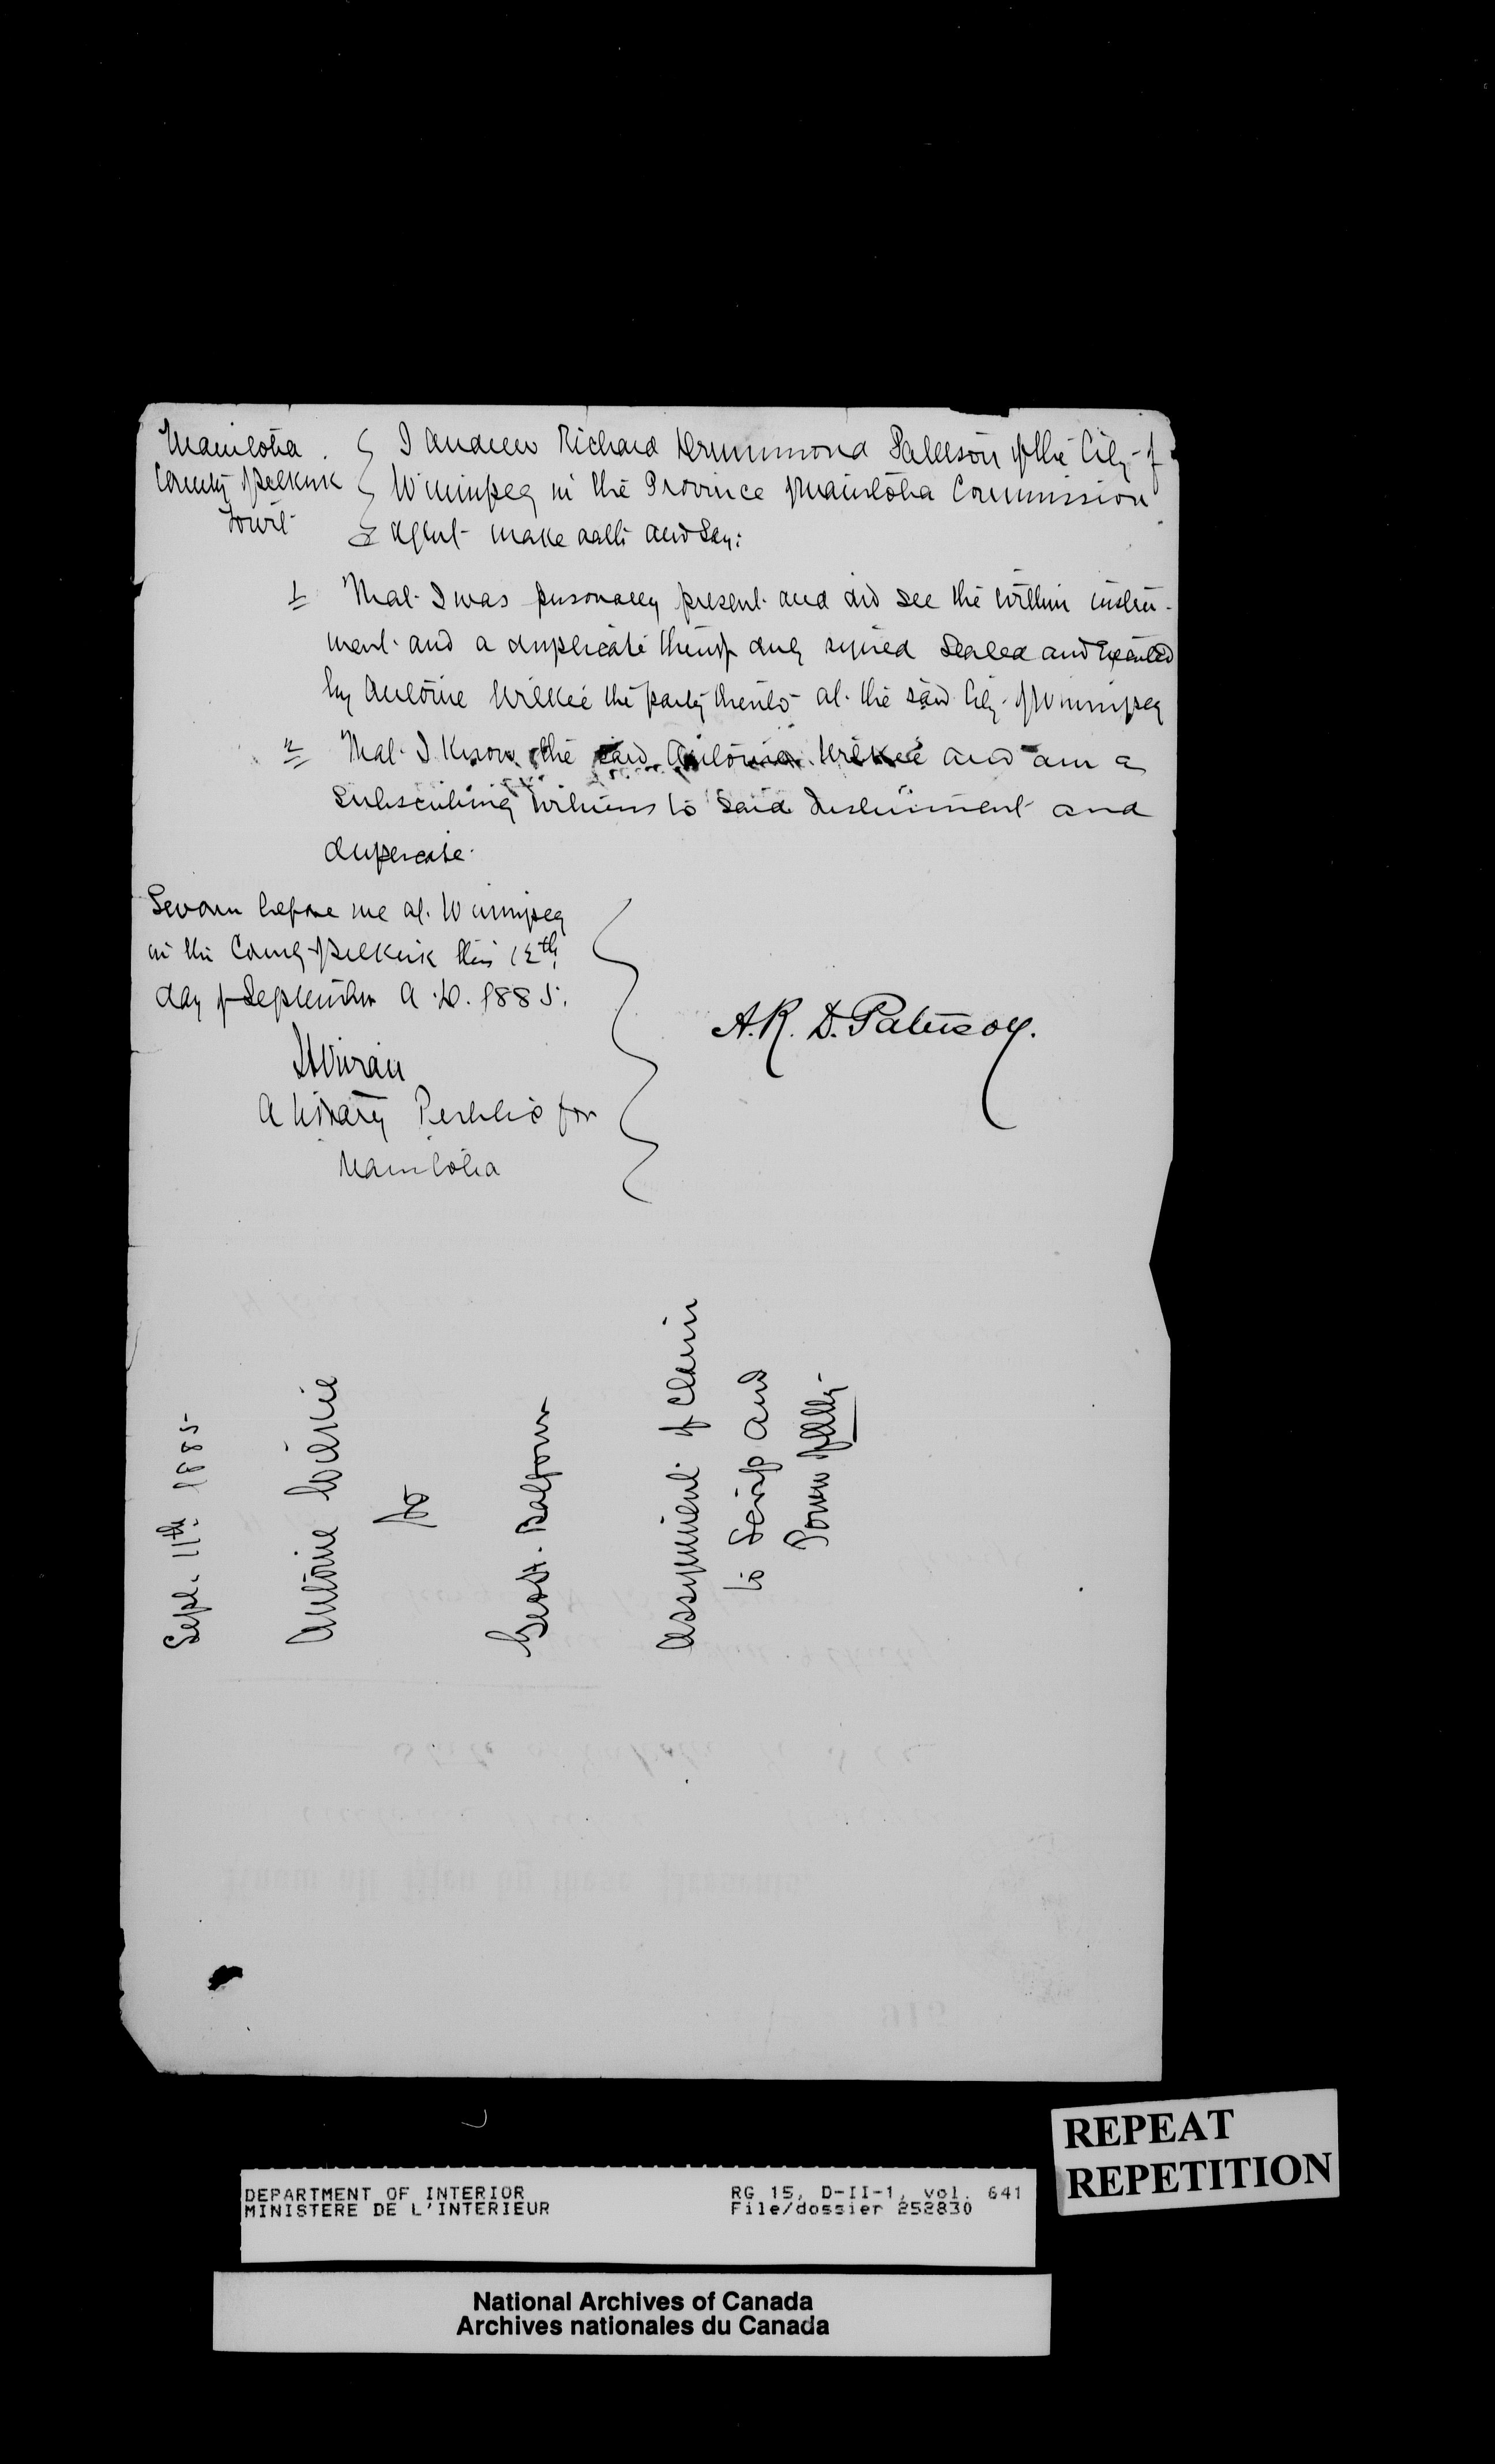 Manitoba
County of Selkirk
To wit
I Andrew Richard Drummond Paterson of the City of
Winnipeg in the Province of Manitoba Commission
Agent make oath and say:
1 That I was personally present and did see the within instru-
ment and a duplicate thereof duly signed Sealed and Executed
by Antoine Wilkie the party thereto at the said City of Winnipeg
2 That I Know the said Antoine Wilkie and am a
Subscribing Witness to Said Instrument and
duplicate.
Sworn before me at Winnipeg
in the County of Selkirk this 12th
day of September A.D. 1885.
A Notary Public for
Manitoba
A.R.D. Paterson.
Sept. 11th 1885
Antoine Wilkie
to
Geo H. Balfour
Assignment of Claim
to Scrip and
Power of Atty.
REPEAT
REPETITION
DEPARTMENT OF INTERIOR
MINISTERE DE L'INTERIEUR
RG 15, D-II-1, vol. 641
File/dossier 252830
National Archives of Canada
Archives nationales du Canada